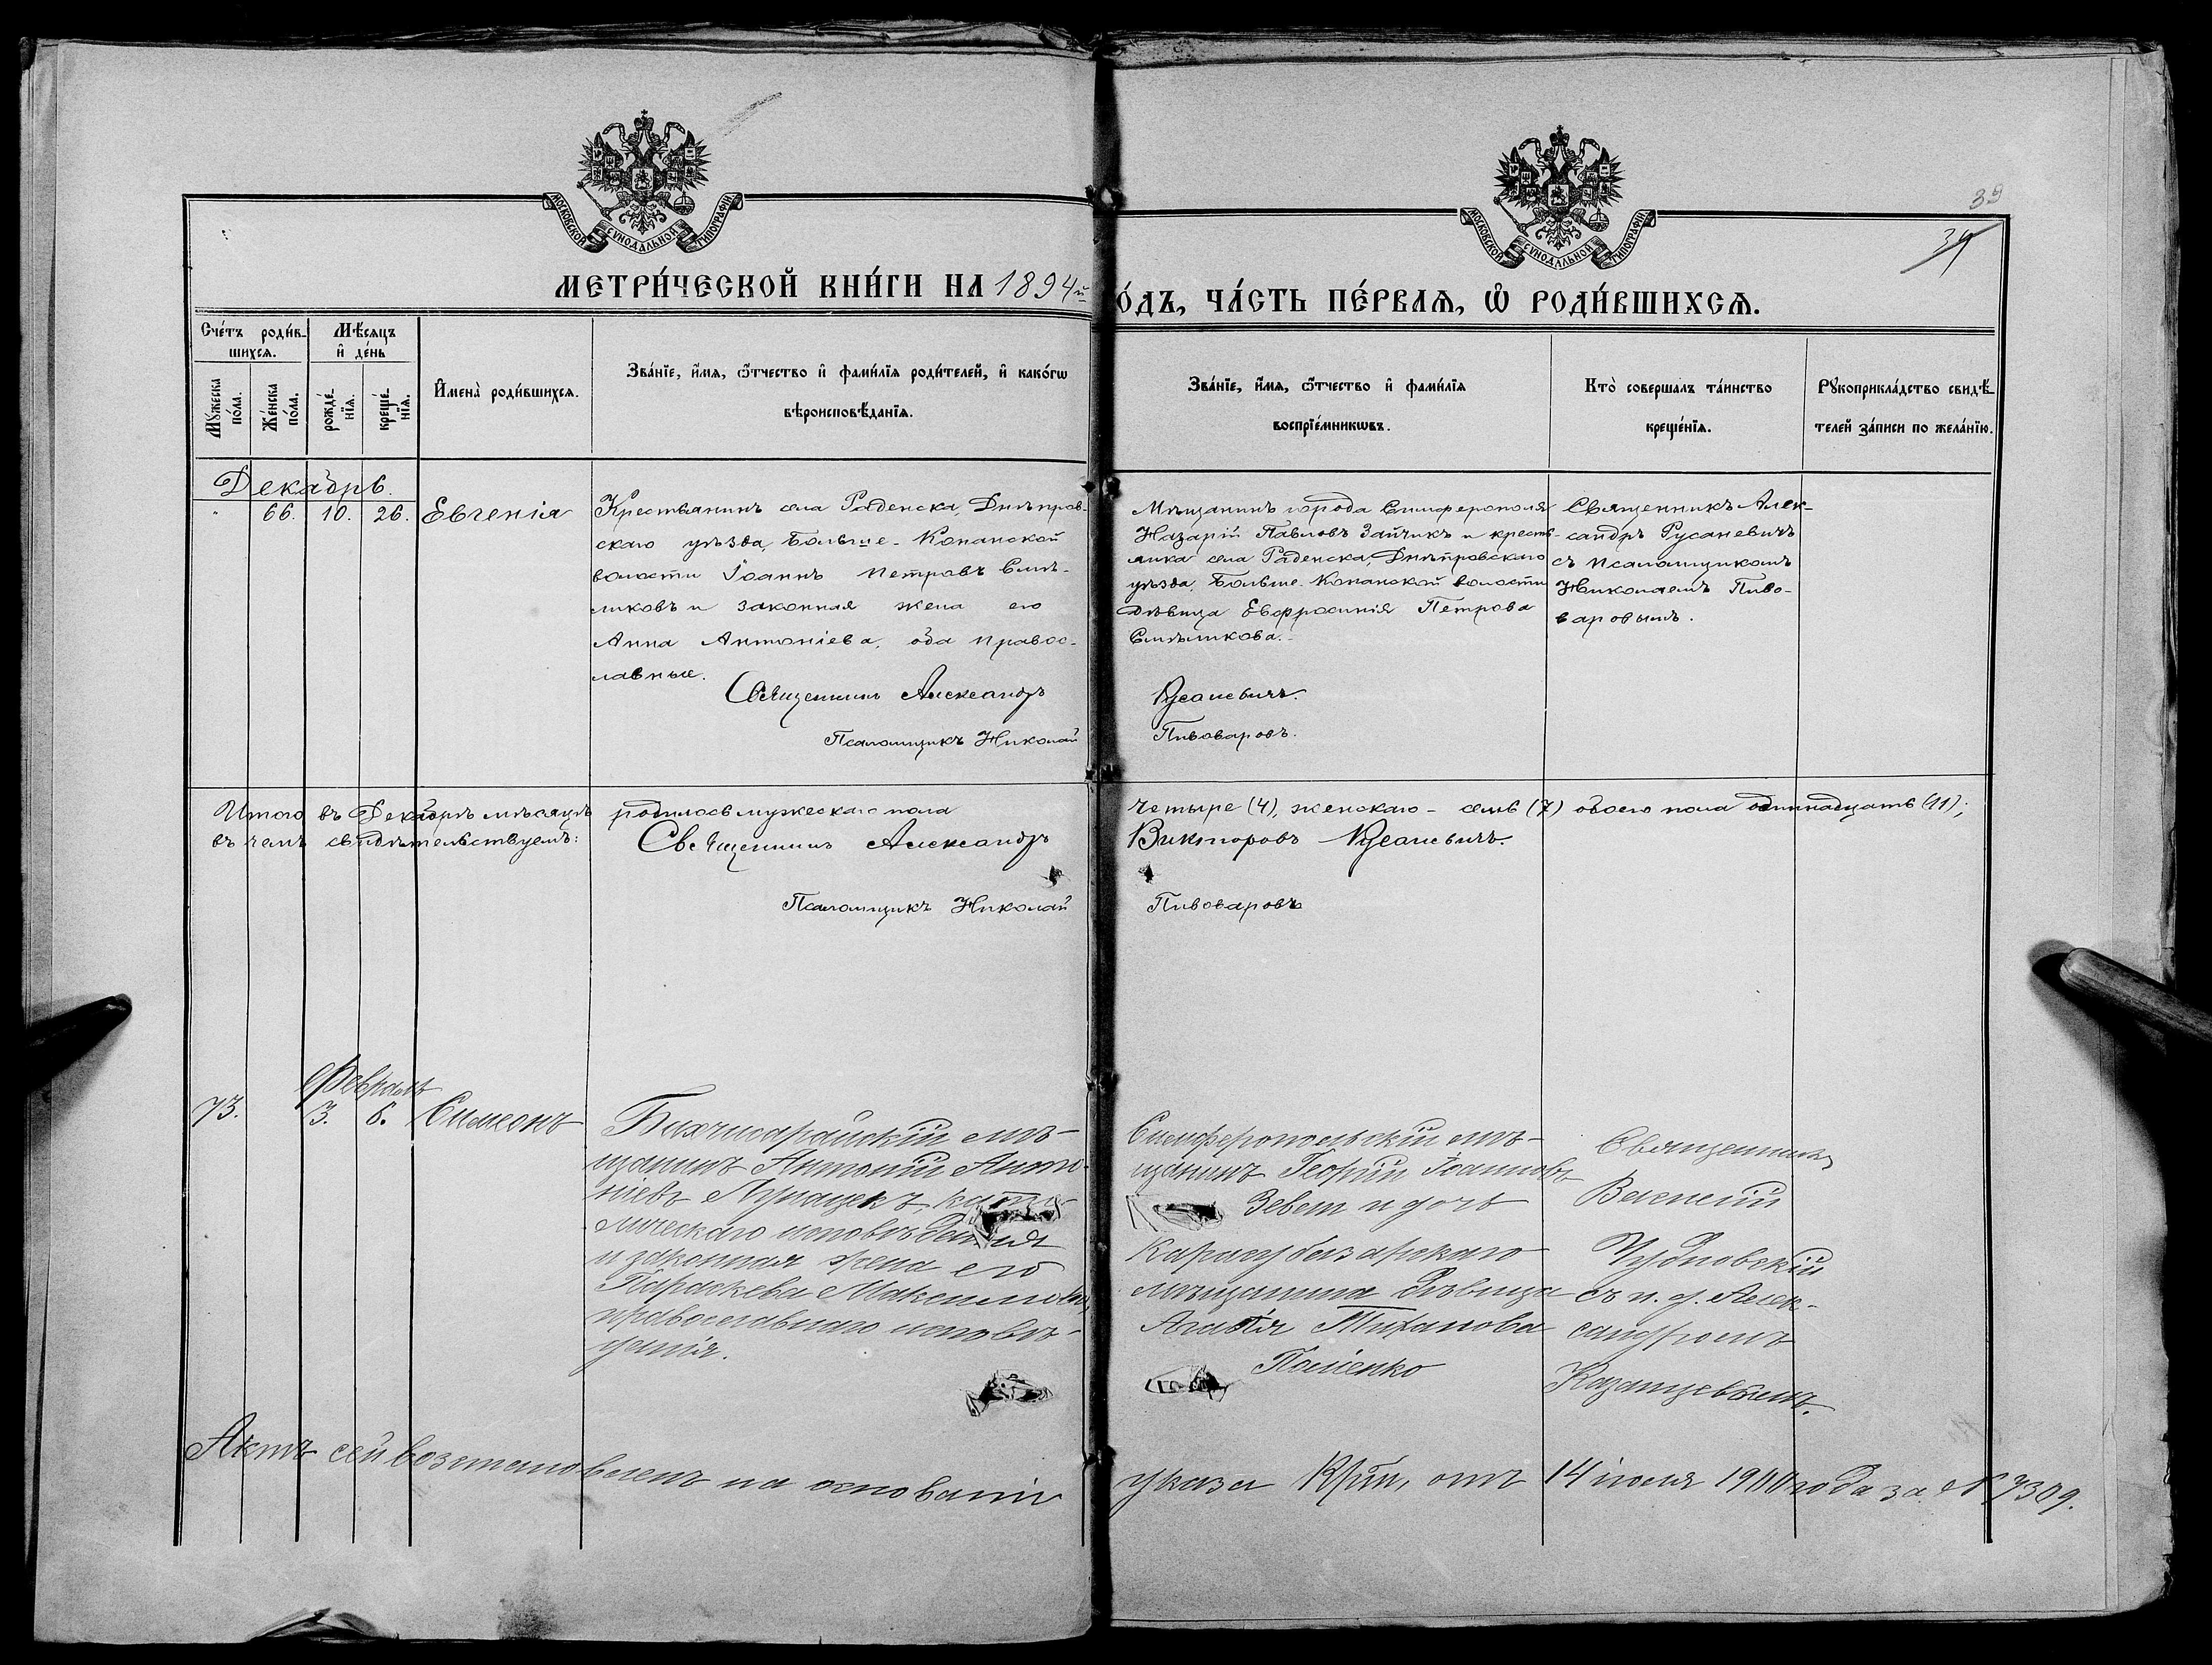 МОСКОВСКОЙ СѴНОДАЛЬНОЙ ТИПОГРАФІИ
МОСКОВСКОЙ СѴНОДАЛЬНОЙ ТИПОГРАФІИ
39
34
МЕТРИ́ЧЕСКОЙ КНИ́ГИ НА 1894й
О́ДЪ, ЧА́СТЬ ПЕ́РВАѦ, Ѡ҆ РОДИ́ВШИХСѦ.
Сче́тъ роди́в-
шихсѧ.
Мѣ́сѧцъ
и҆ де́нь
Мꙋ́жеска по́ла.
Же́нска по́ла.
рожде́-
нїѧ.
креще́-
нїѧ.
И҆мена̀ роди́вшихсѧ.
Зва́нїе, и҆́мѧ, ѻ҆́тчество и҆ фами́лїѧ роди́телей, и҆ како́гѡ
вѣроисповѣ́данїѧ.
Зва́нїе, и҆́мѧ, ѻ҆́тчество и҆ фами́лїѧ
воспрїе́мникѡвъ.
Кто̀ совершалъ та́инство
креще́нїѧ.
Рꙋкоприкла́дство свидѣ́-
телей за́писи по жела́нїю.
Декабрь.
" 66. 10. 26. Евгенія
Крестьянинъ села Раденска, Днѣпров-
скаго уѣзда, Больше-Копанской
волости Іоаннъ Петровъ Смѣ-
ликовъ и законная жена его
Анна Антоніева, оба правос-
лавные.
Священникъ Александръ
Псаломщикъ Николай
Мѣщанинъ города Симферополя
Назарій Павловъ Зайчикъ и кресть-
янка села Раденска, Днѣпровскаго
уѣзда, Больше-Копанской волости
дѣвица Евфросинія Петрова
Смѣликова.
Русаневичъ.
Пивоваровъ.
Священникъ Алек-
сандръ Русаневичъ
съ псаломщикомъ
Николаемъ Пиво-
варовымъ.
Итого въ Декабрѣ мѣсяцѣ родилось мужескаго пола
четыре (4), женскаго - семь (7) обоего пола одиннадцать (11);
въ чемъ свидѣтельствуемъ:
Священникъ Александръ
Викторовъ Русаневичъ.
Псаломщикъ Николай
Пивоваровъ
Февраль
73. 3. 6. Симеонъ
Бахчисарайскій мѣ-
щанинъ Антоній Анто-
ніевъ
лическаго исповѣданія
и законная жена его
Параскева Максимова,
православнаго исповѣ-
данія.
Симферопольскій мѣ-
щанинъ Георгій Іоанновъ
Зевет и дочь
Карасубазарскаго
мѣщанина дѣвица
Агафія
Священникъ
Василій
Чудновскій
съ и. д. Алек-
сандромъ
Казанцевымъ.
Актъ сей возстановленъ на основаніи
указа отъ 14 іюля 1910 года за № 7309.